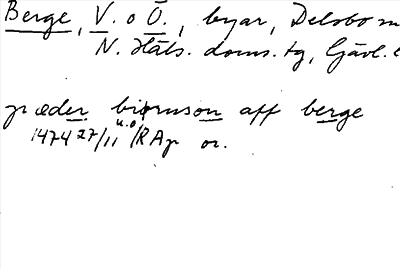 Berge, V. o Ö., byar, Delsbo sn
N. Häls. doms. tg, Gävl. l
p æder biørnson aff berge
u.o.
1474 27/11 RAp or.